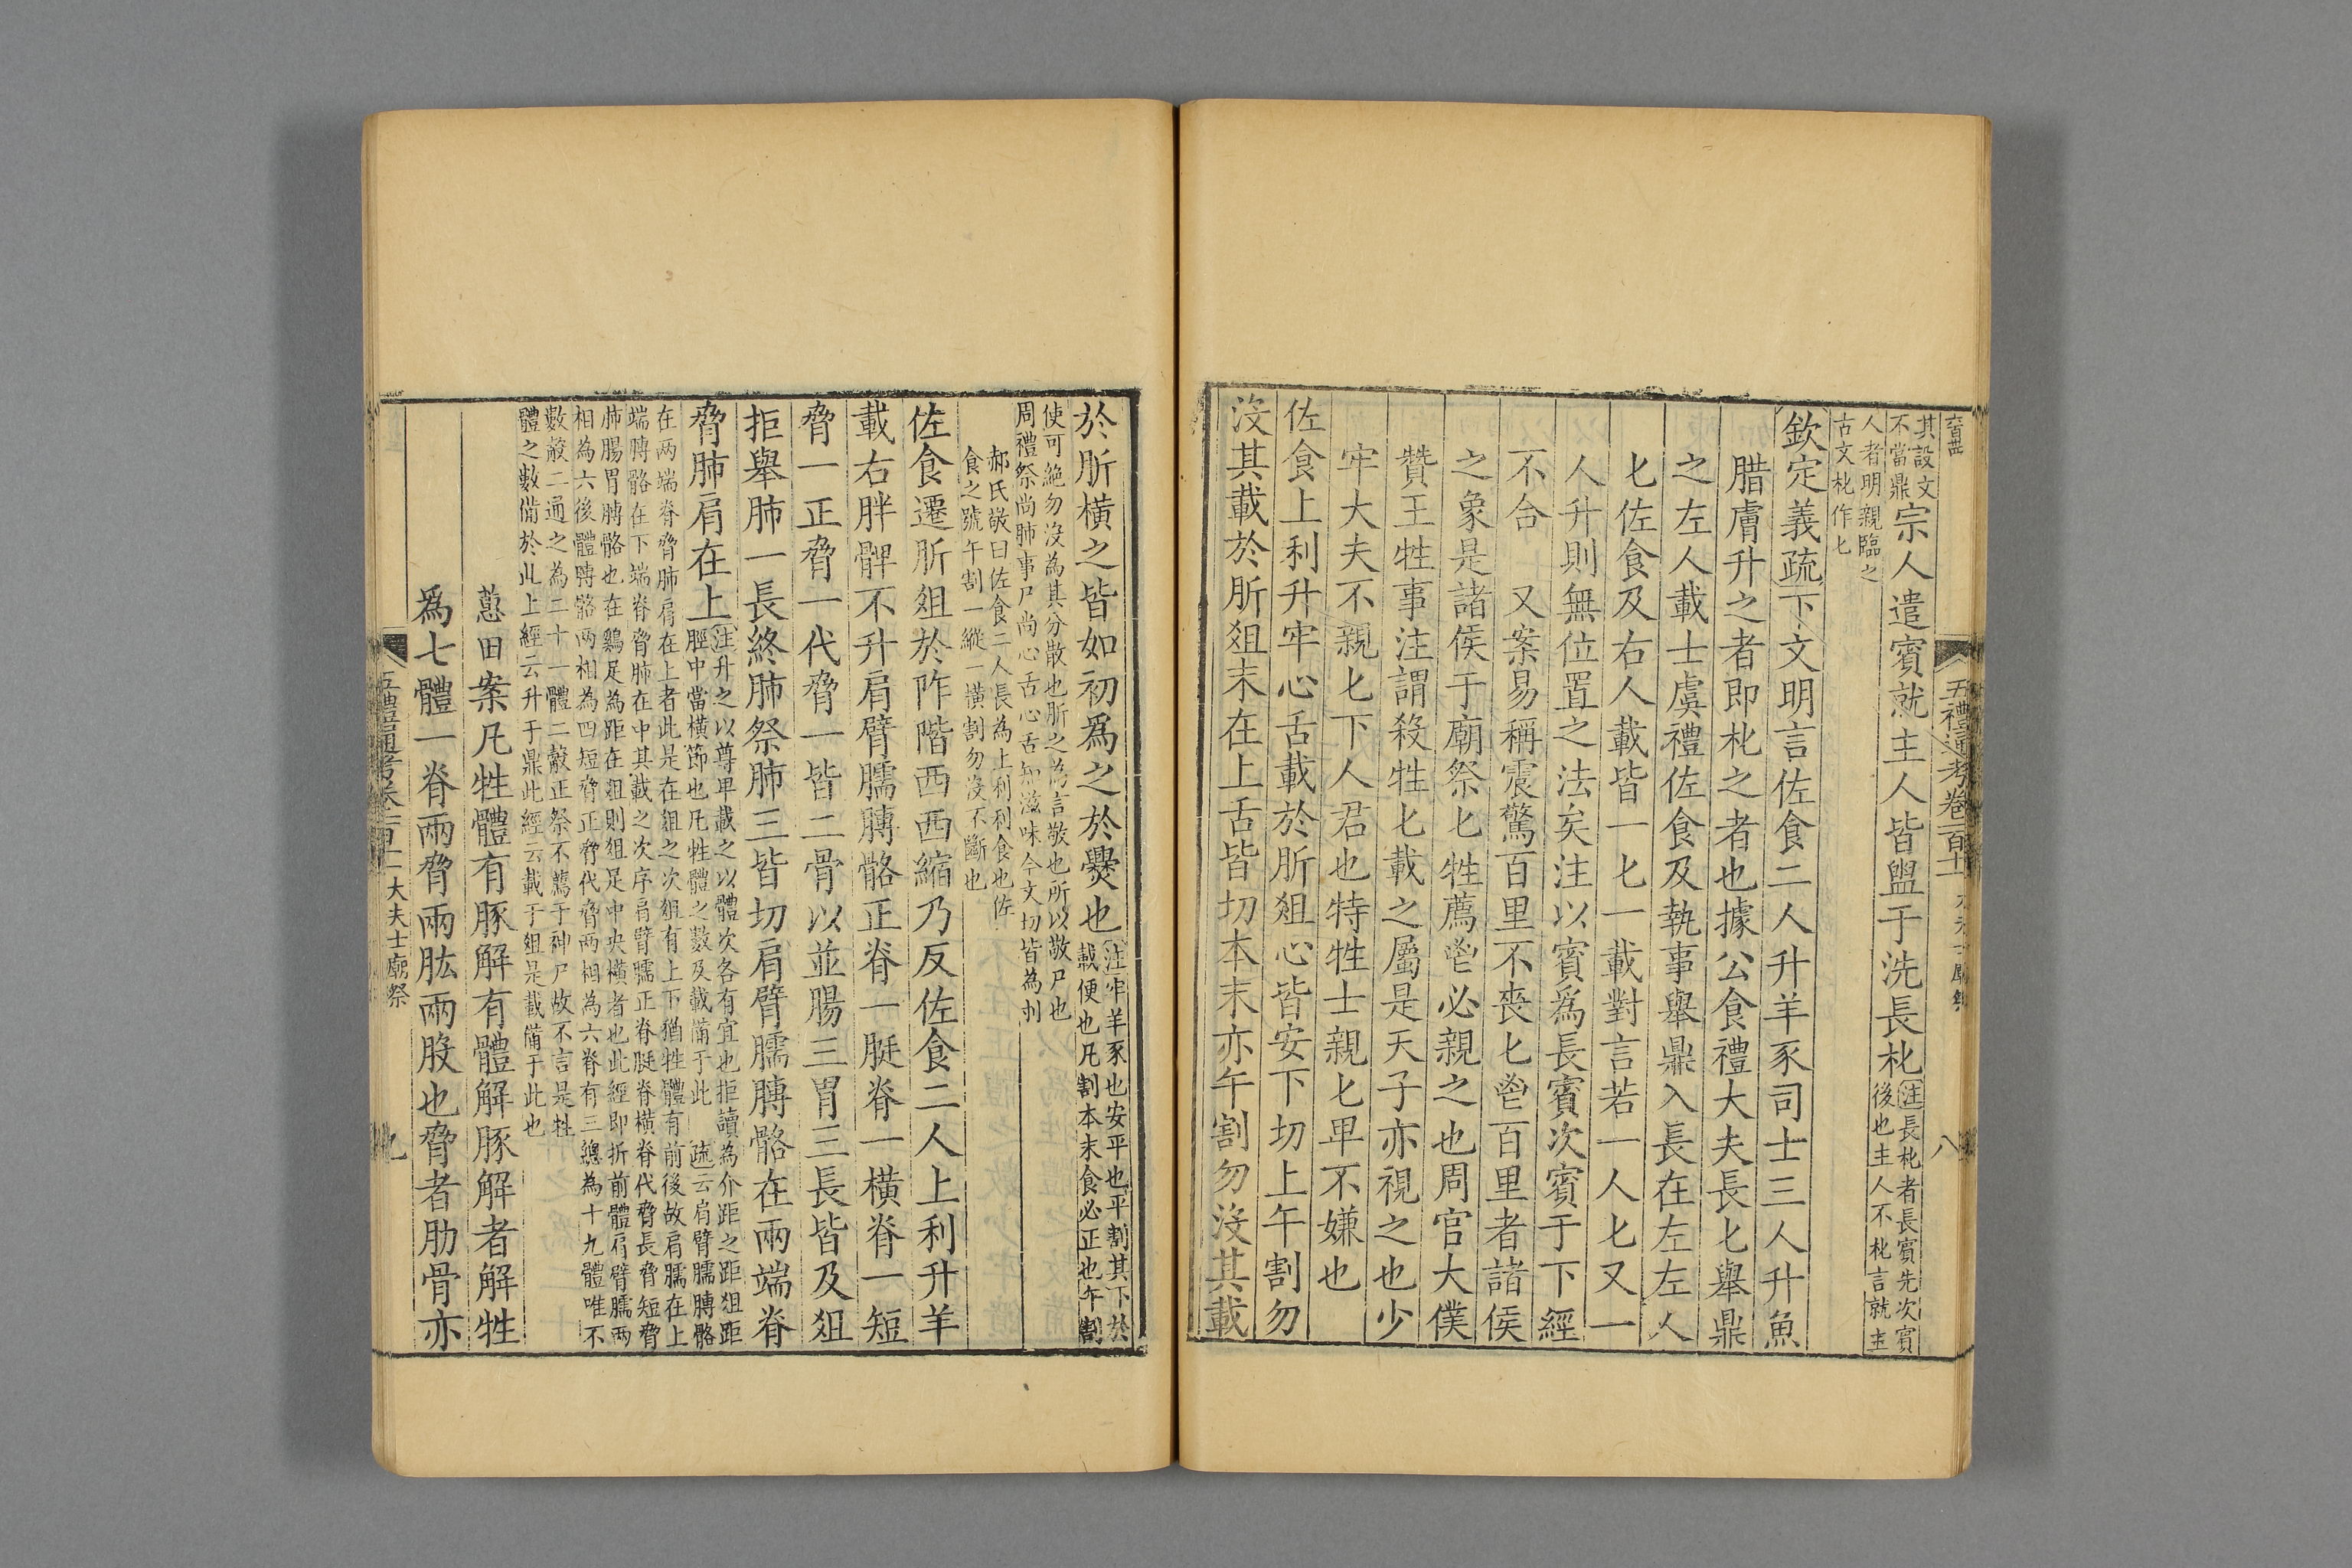 五禮通考卷一百十一
八
其設文
不當鼎
宗人遣賓就主人皆盥于洗長朼
注長朼者長賓先次賓
後也主人不朼言就主
人者明親臨之
古文朼作匕
欽定義疏下文明言佐食二人升羊豕司士三人升魚
腊膚升之者即朼之者也據公食禮大夫長匕舉鼎
之左人載士虞禮佐食及執事舉鼎入長在左左人
匕佐食及右人載皆一匕一載對言若一人匕又一
人升則無位置之法矣注以賓爲長賓次賓于下經
不合　又案易稱震驚百里不喪匕鬯百里者諸侯
之象是諸侯于廟祭匕牲薦鬯必親之也周官大僕
贊王牲事注謂殺牲匕載之屬是天子亦視之也少
牢大夫不親匕下人君也特牲士親匕卑不嫌也
佐食上利升牢心舌載於肵俎心皆安下切上午割勿
沒其載於肵俎末在上舌皆切本末亦午割勿沒其載
於肵橫之皆如初爲之於爨也
注牢羊豕也安平也平割其下於
載便也凡割本末食必正也午割
使可絶勿沒為其分散也肵之為言敬也所以敬尸也
周禮祭尚肺事尸尚心舌心舌知滋味今文切皆為刌
郝氏敬曰佐食二人長為上利利食也佐
食之號午割一縱一橫割勿沒不斷也
佐食遷肵俎於阼階西西縮乃反佐食二人上利升羊
載右胖髀不升肩臂臑膊骼正脊一脡脊一橫脊一短
脅一正脅一代脅一皆二骨以並腸三胃三長皆及俎
拒舉肺一長終肺祭肺三皆切肩臂臑膊骼在兩端脊
脅肺肩在上
注升之以尊卑載之以體次各有宜也拒讀為介距之距俎距
脛中當橫節也凡牲體之數及載備于此　疏云肩臂臑膊骼
在兩端脊脅肺肩在上者此是在俎之次俎有上下猶牲體有前後故肩臑在上
端膊骼在下端脊脅肺在中其載之次序肩臂臑正脊脡脊橫脊代脅長脅短脅
肺腸胃膊骼也在鷄足為距在俎則俎足中央橫者也此經即折前體肩臂臑兩
相為六後體膊骼兩相為四短脅正脅代脅兩相為六脊有三總為十九體唯不
數觳二通之為二十一體二觳正祭不薦于神尸故不言是牲
體之數備於此上經云升于鼎此經云載于俎是載備于此也
蕙田案凡牲體有豚解有體解豚解者解牲
爲七體一脊兩脅兩肱兩股也脅者肋骨亦
五禮通考卷一百十一　大夫士廟祭
九